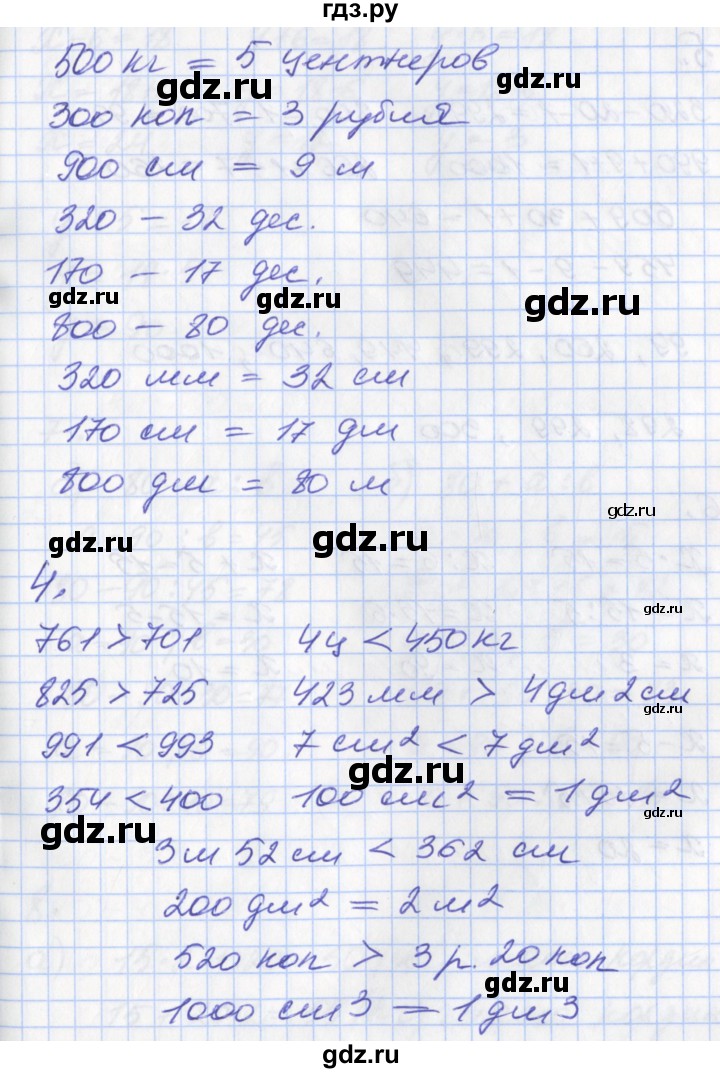 гдз.ру
500 кг = 5 центнеров
gdz.ru gdz.ru
300 коп = 3 рубля
900 см = 9 м
320 – 32 дес.
170 – 17 дес.
gdz.ru gdz.ru gdz.ru
800 – 80 дес.
320 мм = 32 см
170 см = 17 дм
800 дм = 80 м
gdz.ru
gdz.ru gdz.ru
4.
gdz.ru
761 > 701 4ц < 450 кг
825 > 725 423 мм > 4 дм 2 см
gdz.ru
991 < 993 7 см² < 7 дм²
gdz.ru
354 < 400 100 см² = 1 дм²
gdz.ru
gdz.ru
3м 52 см < 362 см
200 дм² = 2 м²
520 коп > 3 р. 20 коп
gdz.ru
1000 см3 = 1 дм3
gdz.ru